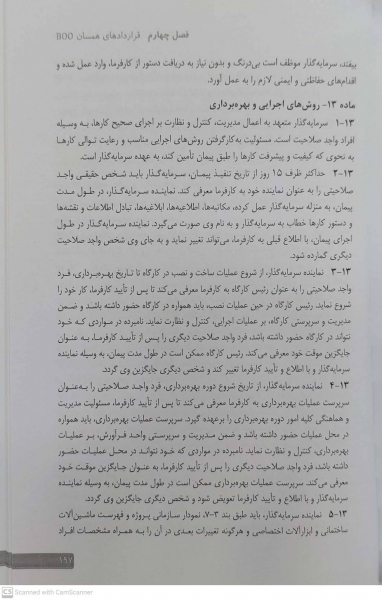 فصل چهارم  قراردادهای همسان BOO
بیفتد، سرمایه‌گذار موظف است بی‌درنگ و بدون نیاز به دریافت دستور از کارفرما، وارد عمل شده و
اقدام‌های حفاظتی و ایمنی لازم را به عمل آورد.
ماده ۱۳- روش‌های اجرایی و بهره‌برداری
۱۳-۱ سرمایه‌گذار متعهد به اعمال مدیریت، کنترل و نظارت بر اجرای صحیح کارها، به وسیله
افراد واجد صلاحیت است. مسئولیت به‌کارگرفتن روش‌های اجرایی مناسب و رعایت توالی کارها
به نحوی که کیفیت و پیشرفت کارها را طبق پیمان تأمین کند، به عهده سرمایه‌گذار است.
۱۳-۲ حداکثر ظرف ۱۵ روز از تاریخ تنفیذ پیمان، سرمایه‌گذار باید شخص حقیقی واجد
صلاحیتی را به عنوان نماینده خود به کارفرما معرفی کند. نماینده سرمایه‌گذار، در طول مدت
پیمان، به منزله سرمایه‌گذار عمل کرده، مکاتبه‌ها، اطلاعیه‌ها، ابلاغیه‌ها، تبادل اطلاعات و نقشه‌ها
و دستور کارها خطاب به سرمایه‌گذار و به نام وی صورت می‌گیرد. نماینده سرمایه‌گذار در طول
اجرای پیمان، با اطلاع قبلی به کارفرما، می‌تواند تغییر نماید و به جای وی شخص واجد صلاحیت
دیگری گمارده شود.
۱۳-۳ نماینده سرمایه‌گذار، از شروع عملیات ساخت و نصب در کارگاه تا تاریخ بهره‌برداری، فرد
واجد صلاحیتی را به عنوان رئیس کارگاه به کارفرما معرفی می‌کند تا پس از تأیید کارفرما، کار خود را
شروع نماید. رئیس کارگاه در حین عملیات نصب، باید همواره در کارگاه حضور داشته باشد و ضمن
مدیریت و سرپرستی کارگاه، بر عملیات اجرایی، کنترل و نظارت نماید. نامبرده در مواردی که خود
نتواند در کارگاه حضور داشته باشد، فرد واجد صلاحیت دیگری را پس از تأیید کارفرما، به عنوان
جایگزین موقت خود معرفی می‌کند. رئیس کارگاه ممکن است در طول مدت پیمان، به وسیله نماینده
سرمایه‌گذار و با اطلاع و تأیید کارفرما تغییر کند و شخص دیگری جایگزین وی گردد.
۱۳-۴ نماینده سرمایه‌گذار، از تاریخ شروع دوره بهره‌برداری، فرد واجد صلاحیتی را به‌عنوان
سرپرست عملیات بهره‌برداری به کارفرما معرفی می‌کند تا پس از تأیید کارفرما، مسئولیت مدیریت
و هماهنگی کلیه امور دوره بهره‌برداری را برعهده گیرد. سرپرست عملیات بهره‌برداری، باید همواره
در محل عملیات حضور داشته باشد و ضمن مدیریت و سرپرستی واحد فرآورش، بر عملیات
بهره‌برداری، کنترل و نظارت نماید. نامبرده در مواردی که خود نتواند در محل عملیات حضور داشته
باشد، فرد واجد صلاحیت دیگری را پس از تأیید کارفرما، به عنوان جایگزین موقت خود
معرفی می‌کند. سرپرست عملیات بهره‌برداری ممکن است در طول مدت پیمان، به وسیله نماینده
سرمایه‌گذار و با اطلاع و تأیید کارفرما تعویض شود و شخص دیگری جایگزین وی گردد.
۱۳-۵ نماینده سرمایه‌گذار، باید طبق بند ۳-۷، نمودار سازمانی پروژه و فهرست ماشین‌آلات
ساختمانی و ابزارآلات اختصاصی و هرگونه تغییرات بعدی در آن را به همراه مشخصات افراد
۱۹۷
CS Scanned with CamScanner